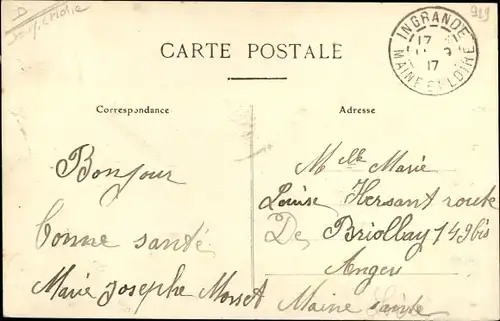 D
929
INGRANDE
17
17
MAINE ET LOIRE
CARTE POSTALE
Correspondance
Adresse
Bonjour
bonne santé
Marie Josephe
Mlle Marie
Louise Hersant route
De Briollay 149bis
Angers
Maine